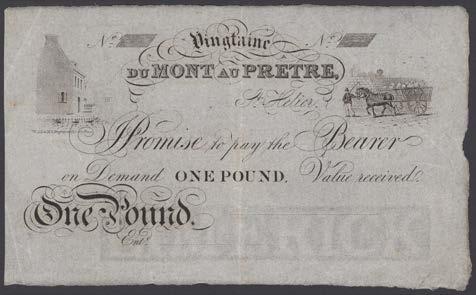 No. No.
Vingtaine
DU MONT AU PRÊTRE,
St. Helier,
I Promise to pay the Bearer
on Demand ONE POUND. Value received.
One Pound.
Entd.